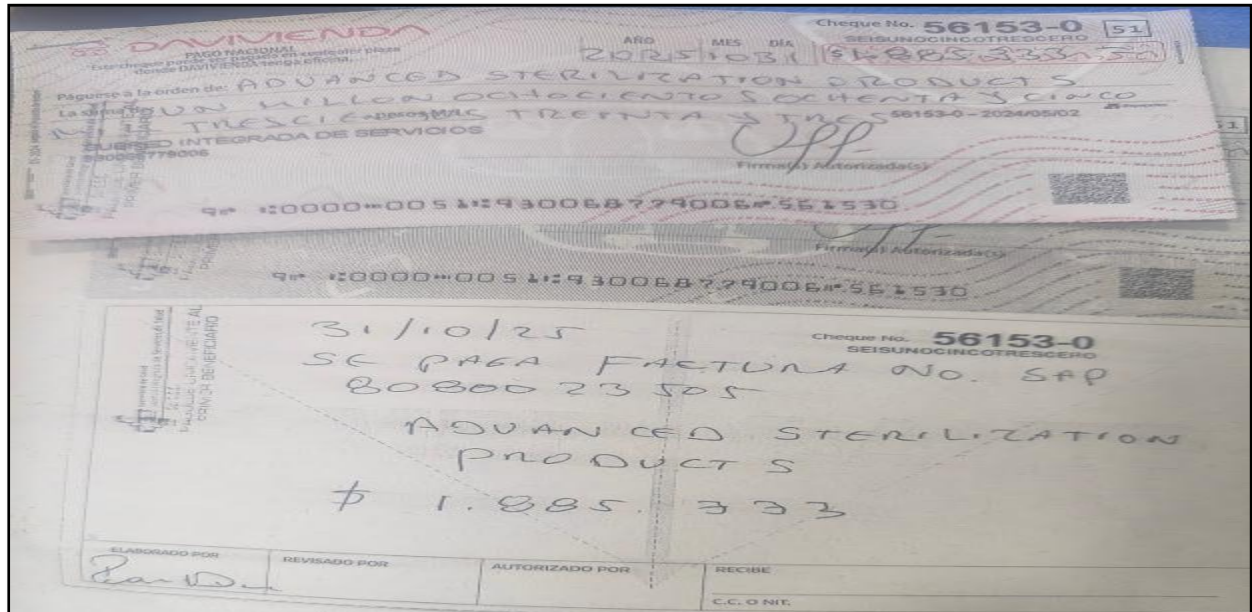 DAVIVIENDA
PAGO NACIONAL
Este cheque puede ser pagado en cualquier plaza
donde DAVIVIENDA tenga oficina.
Cheque No. 56153-0 51
SEISUNOCINCOTRESCERO
AÑO MES DÍA
2025 10 31 $1.885.333
Páguese a la orden de: ADVANCED STERILIZATION PRODUCTS
La suma de: UN MILLON OCHOCIENTOS OCHENTA Y CINCO
M TRESCIENTOS TREINTA Y TRES 56153-0 - 2024/05/02
SUBRED INTEGRADA DE SERVICIOS
930068779006
Firma(s) Autorizada(s)
⑆0000⑉0051⑆930068779006⑈561530
Firma(s) Autorizada(s)
⑆0000⑉0051⑆930068779006⑈561530
PÁGUESE ÚNICAMENTE AL
PRIMER BENEFICIARIO
31/10/25
Cheque No. 56153-0
SEISUNOCINCOTRESCERO
SE PAGA FACTURA NO. SAP
8080023505
ADVANCED STERILIZATION
PRODUCTS
$ 1.885.333
ELABORADO POR REVISADO POR AUTORIZADO POR RECIBE
C.C. O NIT.